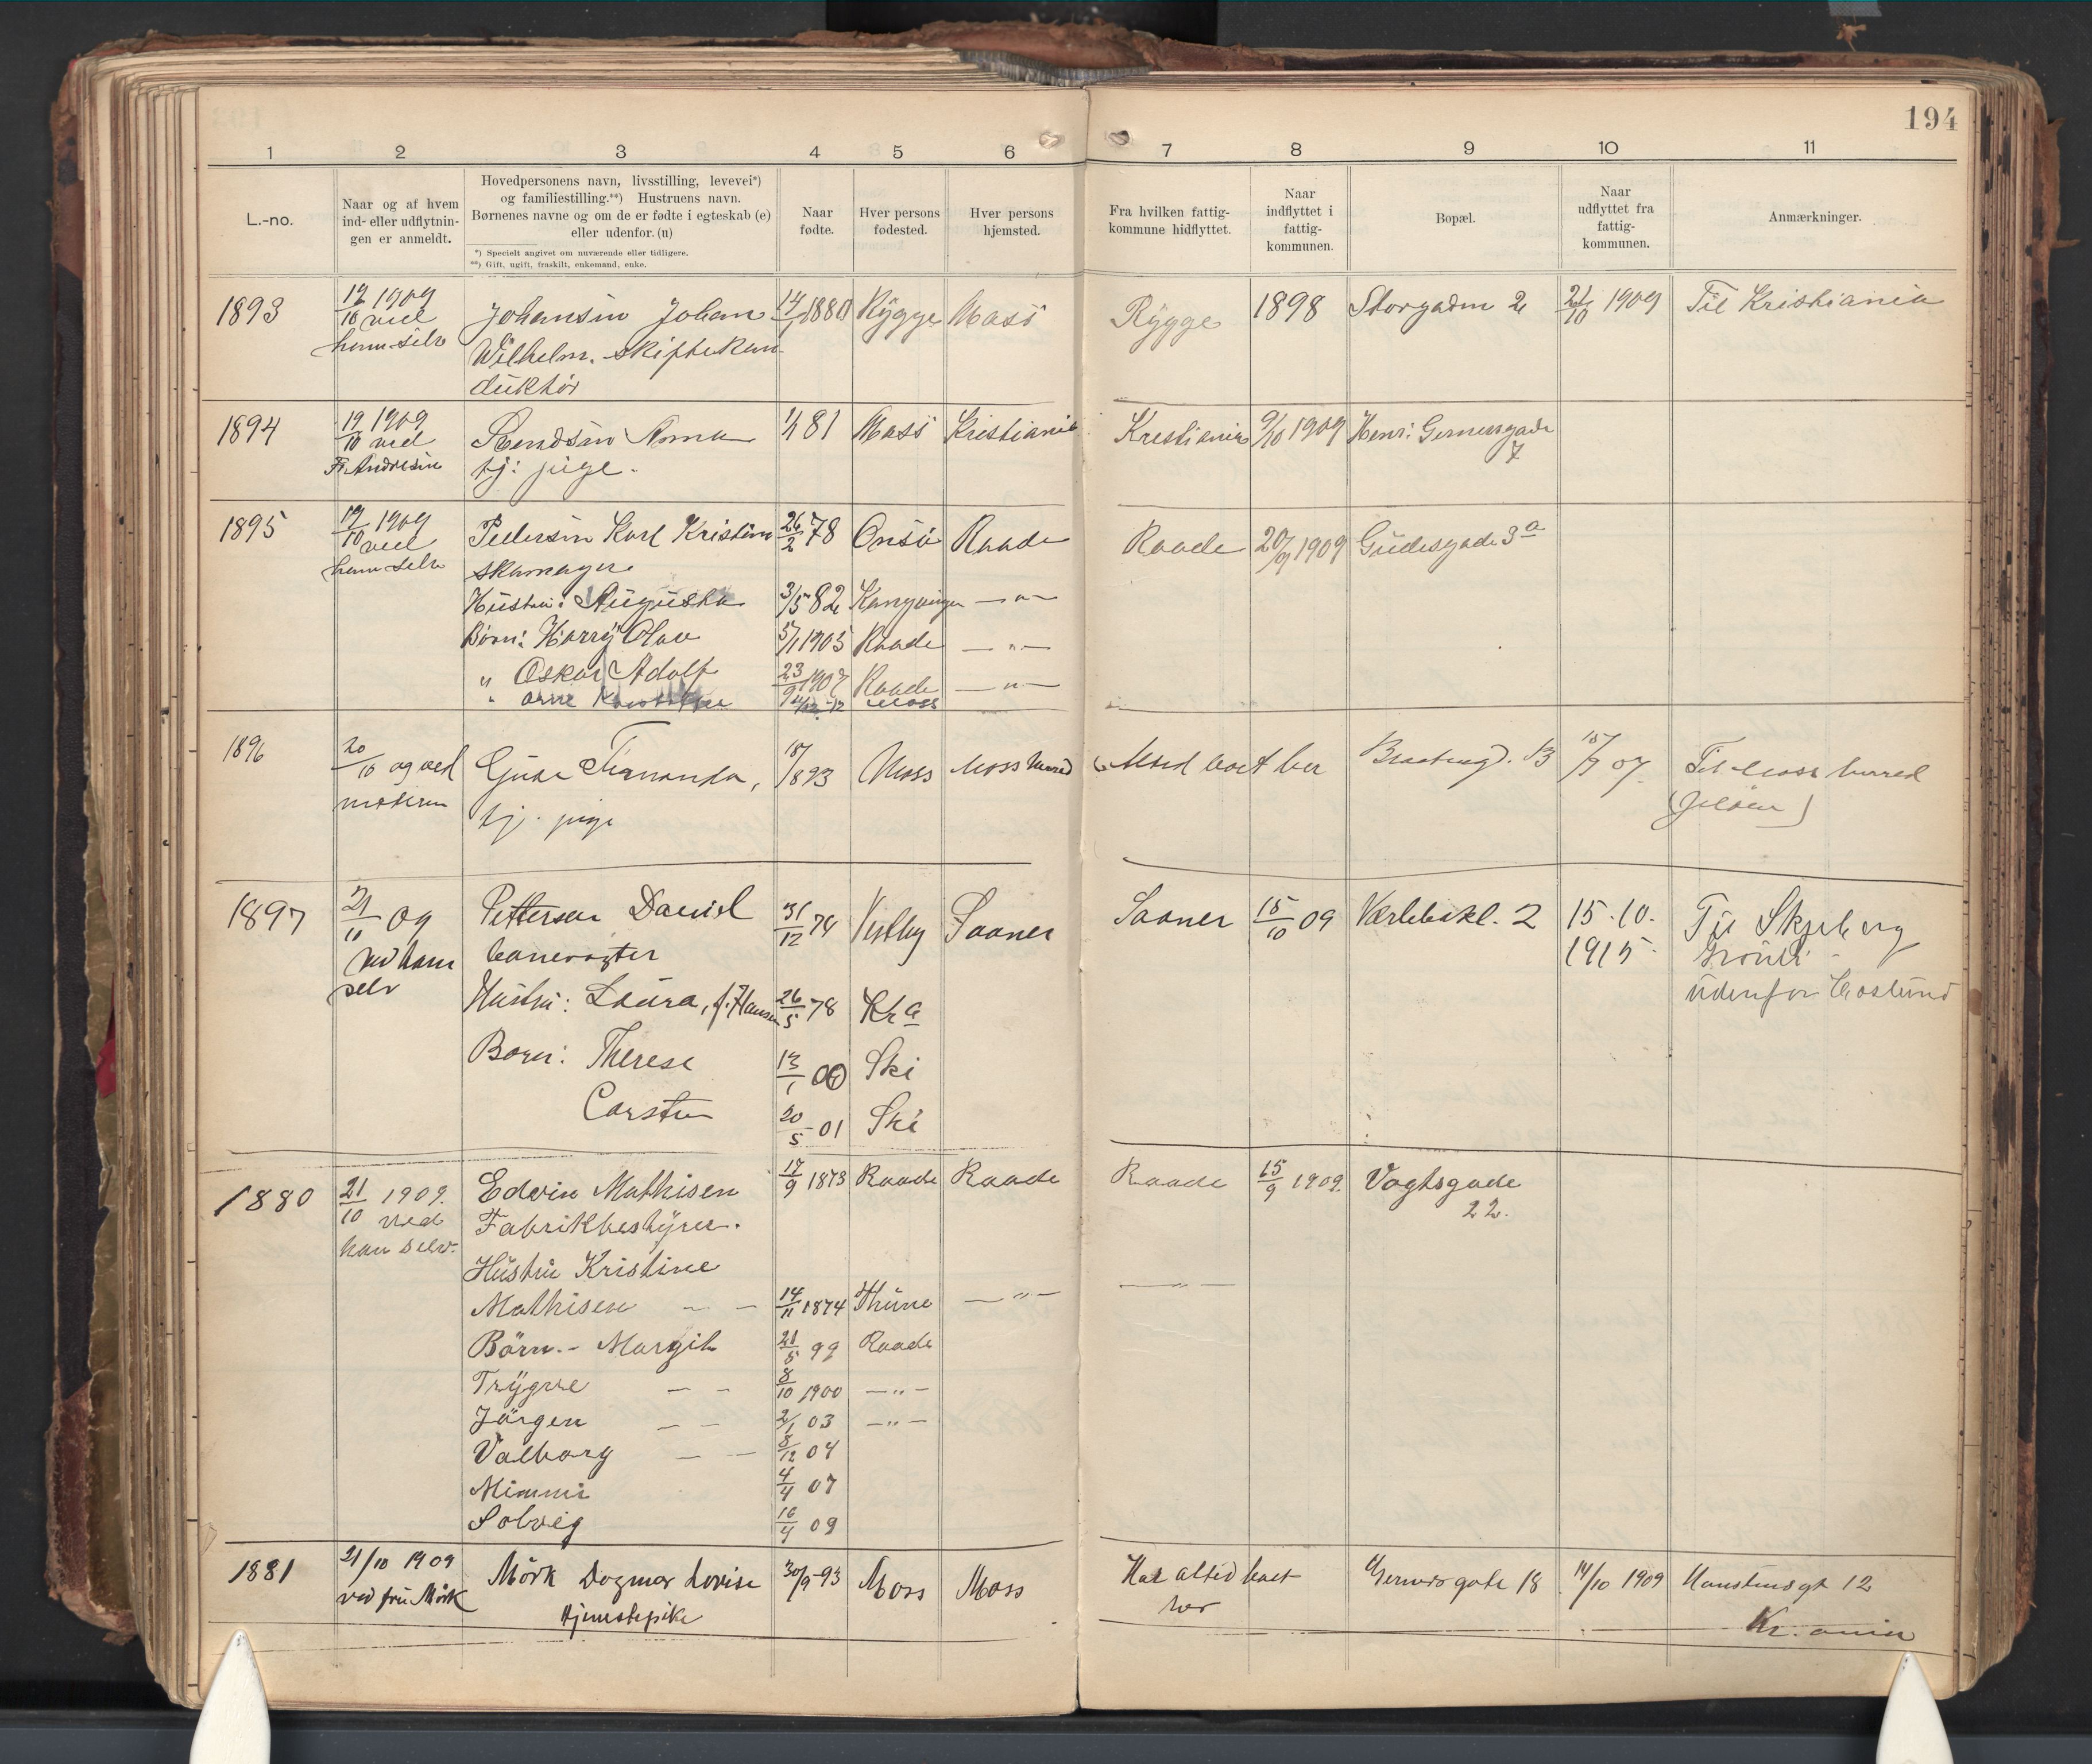 194
1 2 3 4 5 6 7 8 9 10 11
L.-no.
Naar og af hvem
ind- eller udflytnin-
gen er anmeldt.
Hovedpersonens navn, livsstilling, levevei*)
og familiestilling.**) Hustruens navn.
Børnenes navne og om de er fødte i egteskab (e)
eller udenfor. (u)
*) Specielt angivet om nuværende eller tidligere.
**) Gift, ugift, fraskilt, enkemand, enke.
Naar
fødte.
Hver persons
fødested.
Hver persons
hjemsted.
Fra hvilken fattig-
kommune hidflyttet.
Naar
indflyttet i
fattig-
kommunen.
Bopæl.
Naar
udflyttet fra
fattig-
kommunen.
Anmærkninger.
1893 19/10 1909 Johansen Johan 1880 Rygge Moss Rygge 1898 Storgaden 2 21/10 1909 Til Kristiania
ved
ham selv
Wilhelm. skiftekon-
duktør
1894 19/10 1909 Anna 81 Moss Kristiania Kristiania 9/10 1909 Henr: Gernersgade
ved tj: pige. 7
Fr. Andresen
1895 19/10 1909 Pedersen Karl Kristian 26/2 78 Onsø Raade Raade 20/9 1909 Gudesgade 3a
ved
ham selv skomager
Hustru: Augusta 3/5 82 Kongsvinger — " —
Børn: Harry Olav 5/1 1905 Raade — " —
" Oskar Adolf 23/9 1907 Raade — " —
" Arne 12 Moss
1896 20/10 09 ved Gude Fernanda, 18/ 1893 Moss Moss herred Altid boet her 13 15/9 07 Til Moss herred
moderen tj. pige (Jeløen)
1897 21/10 09 Pettersen Daniel 31/12 74 Vestby Saaner Saaner 15/10 09 Værlebakl. 2 15.10. Til Skjeberg
ved ham banevogter 1915
selv udenfor
Hustru: Laura, f. Hansen 26/5 78 Kr a
Born: Therese 13/1 00 Ski
Carsten 20/5 01 Ski
1880 21/10 1909. Edvin Mathisen 17/9 1873 Raade Raade Raade 15/9 1909. Vogtsgade
ved Fabrikbestyrer. 22.
han selv.
Hustru Kristine
Mathisen — — 14/11 1874 Thune — " — — " —
Börn.- Margit 21/5 99 Raade
Trygve — — 8/10 1900 — " —
Jörgen — — 2/1 03 — " —
Valborg — — 8/12 04
Mimmi 4/4 07
Solveig 16/4 09
1881 21/10 1909 Mörk Dagmar Lovise 30/9 -93 Moss Moss Har altid boet Gernersgate 18 14/10 1909 12
ved fru Mörk tjenestepike her Kr.ania